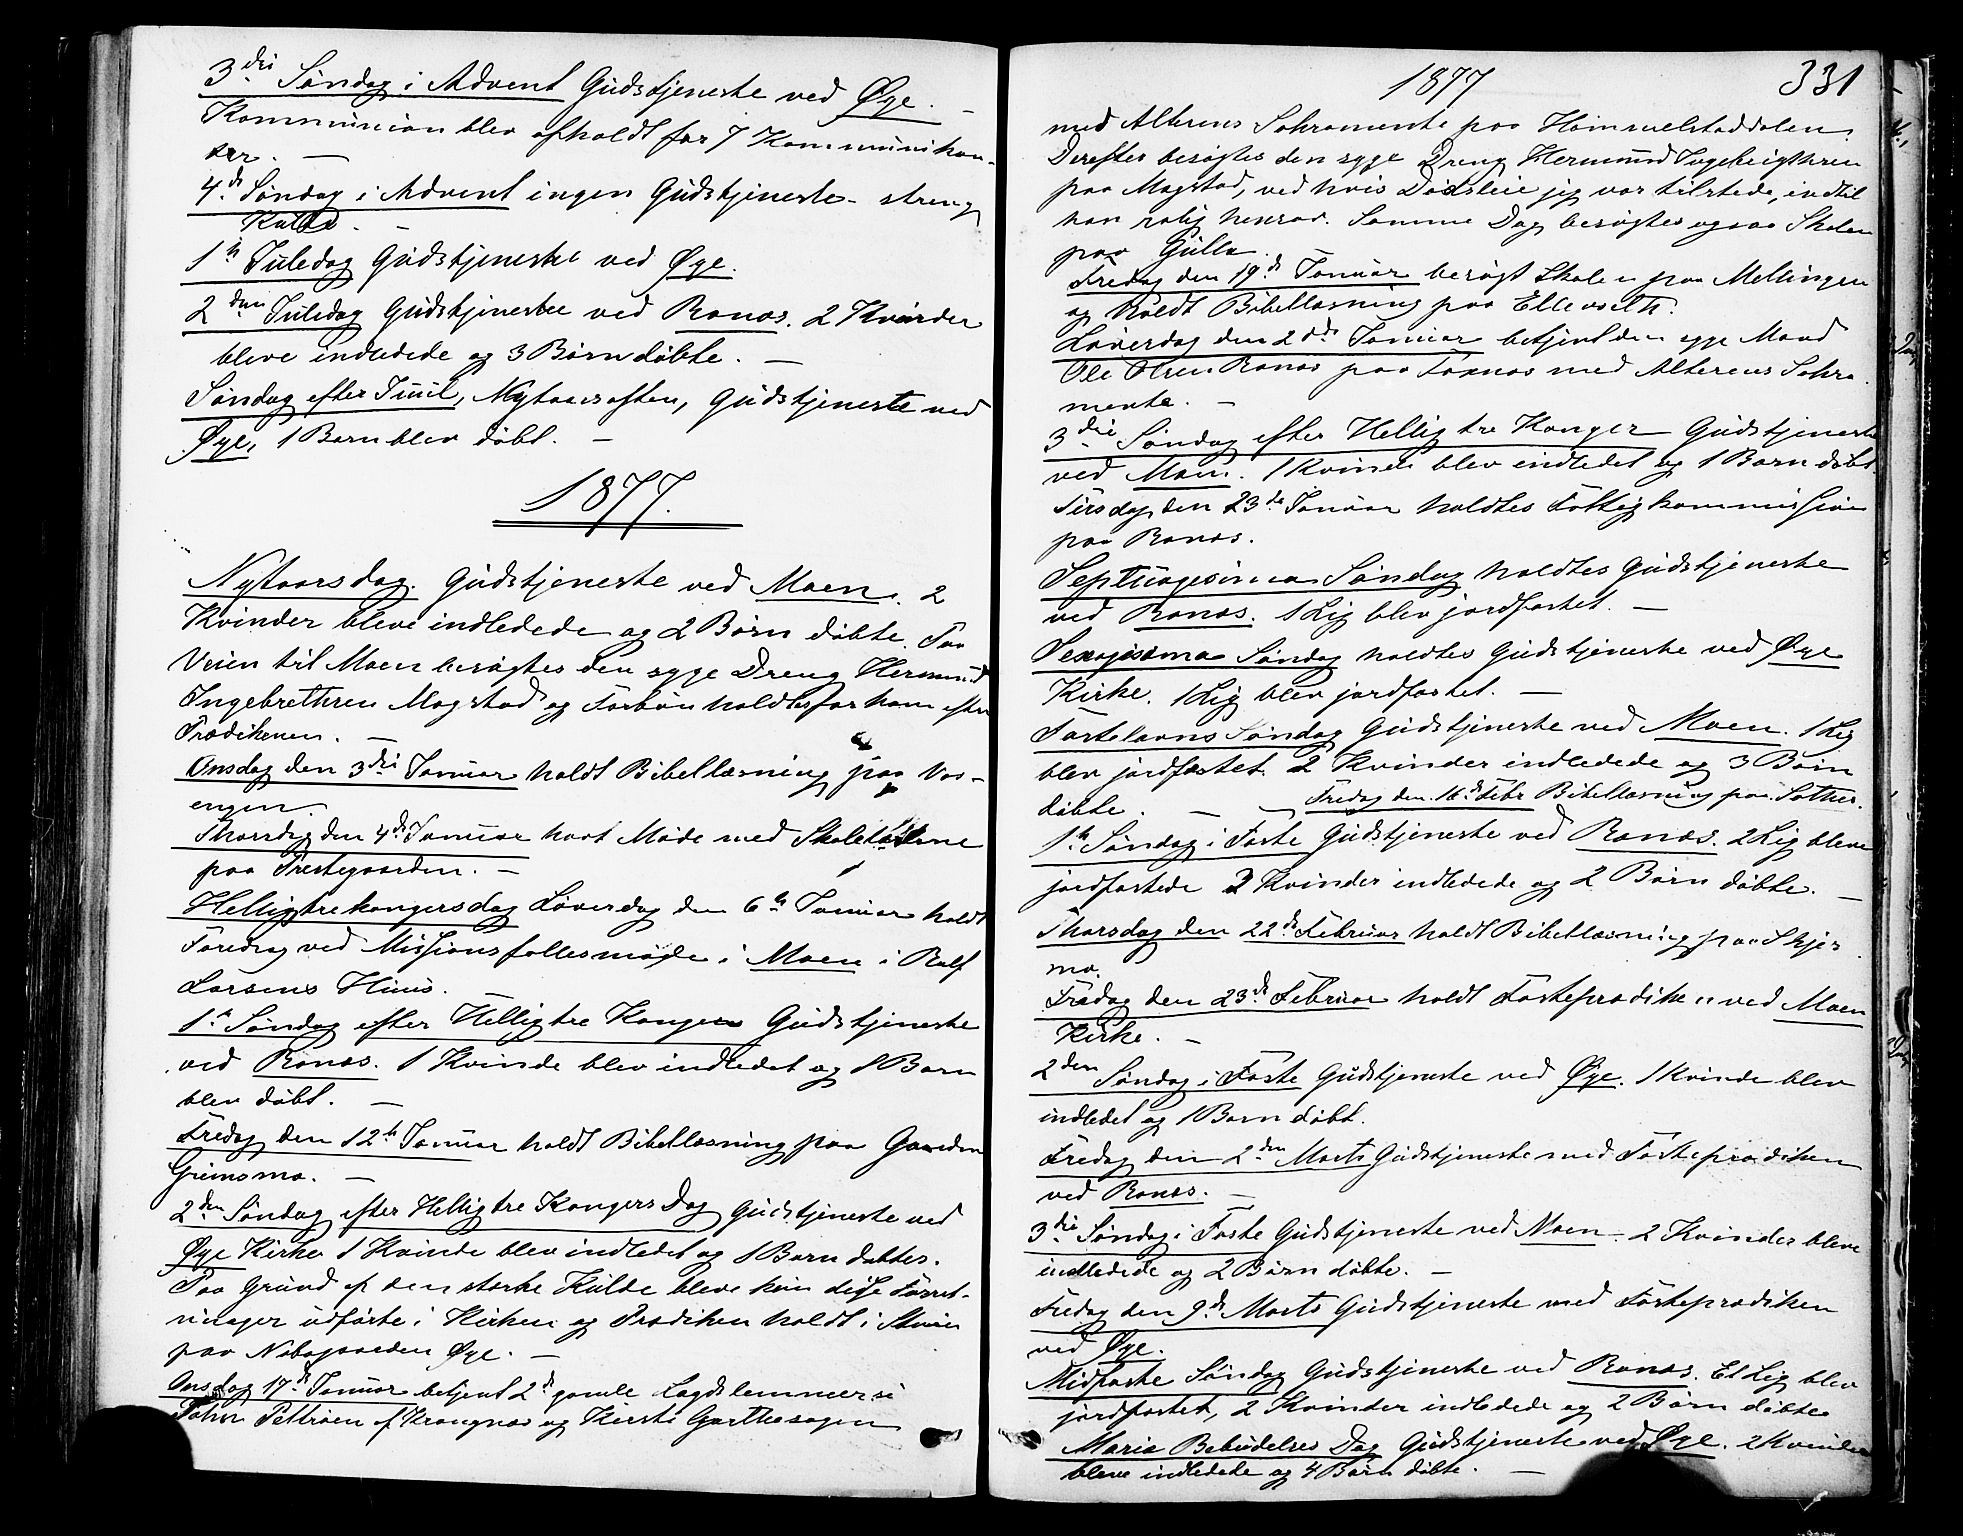 3die Søndag i Advent Gudstjeneste ved Øye. —
Kommunion blev afholdt for 7 Kommunikan-
ter. —
4de Søndag i Advent ingen Gudstjeneste - streng
Kulde. —
1ste Juledag Gudstjeneste ved Øye.
2den Juledag Gudstjeneste ved Ranæs. 2 Kvinder
bleve indledede og 3 Børn døbte. —
Søndag efter Juul, Nytaarsaften, Gudstjeneste ved
Øye, 1 Barn blev døbt. —
1877.
Nytaarsdag. Gudstjeneste ved Moen. 2
Kvinder bleve indledede og 2 Børn døbte. Paa
Veien til Moen besøgtes den syge Dreng Hermund
Ingebrethsen Magstad og Forbøn holdtes for ham efter
Prædikenen. —
Onsdag den 3die Januar holdt Bibellæsning paa Vos-
engen.
Thorsdag den 4de Januar havt Møde med Skolelærerne
paa Prestegaarden. —
Helligtrekongersdag Løverdag den 6te Januar holdt
Foredrag ved Missionsfællesmøde i Moen i Ralf
Larsens Huus. —
1ste Søndag efter Helligtre Konger Gudstjeneste
ved Ranæs. 1 Kvinde blev indledet og 1 Barn
blev døbt. —
Fredag den 12te Januar holdt Bibellæsning paa Gaarden
Grimsmo. —
2den Søndag efter Helligtre Kongers Dag Gudstjeneste ved
Øye Kirke 1 Kvinde blev indledet og 1 Barn døbtes.
Paa Grund af den stærke Kulde bleve kun disse Forret-
ninger udførte i Kirken og Prædiken holdt i Stuen
paa Nabogaarden Øye. —
Onsdag 17de Januar betjent 2de gamle Lægdslemmer
John Pettersen af Krangnæs og Kirsti
1877 331
med Alterens Sakramente paa Hammelstaddalen.
Derefter besøgtes den syge Dreng Hermund Ingebrigthsen
paa Magstad, ved hvis Dødsleie jeg var tilstede, indtil
han rolig hensov. Samme Dag besøgtes ogsaa Skolen
paa Gulla.
Fredag den 19de Januar besøgt Skolen paa Mellingen
og holdt Bibellæsning paa Ellevseth.
Løverdag den 20de Januar betjent den syge Mand
Ole Olsen Ranæs paa Foxnæs med Alterens Sakra-
mente. —
3die Søndag efter Hellig tre Konger Gudstjeneste
ved Moen. 1 Kvinde blev indledet og 1 Barn døbt.
Tirsdag den 23de Januar holdtes Fattigkommission
paa Ranæs.
Septuagesima Søndag holdtes Gudstjeneste
ved Ranæs. 1 Lig blev jordfæstet. —
Sexagesima Søndag holdtes Gudstjeneste ved Øye
Kirke. 1 Lig blev jordfæstet. —
Fastelavns Søndag Gudstjeneste ved Moen. 1 Lig
blev jordfæstet. 2 Kvinder indledede og 3 Børn
døbte. — Fredag den 16de Febr Bibellæsning paa Sæther.
1ste Søndag i Faste Gudstjeneste ved Ranæs. 2 Lig bleve
jordfæstede 2 Kvinder indledede og 2 Børn døbte. —
Thorsdag den 22de Februar holdt Bibellæsning paa Skjer-
mo.
Fredag den 23de Februar holdt Fasteprædiken ved Moen
Kirke. —
2den Søndag i Faste Gudstjeneste ved Øye. 1 Kvinde blev
indledet og 1 Barn døbt.
Fredag den 2den Marts Gudstjeneste med Fasteprædiken
ved Ranæs. —
3die Søndag i Faste Gudstjeneste ved Moen - 2 Kvinder bleve
indledede og 2 Børn døbte. —
Fredag den 9de Marts Gudstjeneste med Fasteprædiken
ved Øye.
Midfaste Søndag Gudstjeneste ved Ranæs. Et Lig blev
jordfæstet, 2 Kvinder indledede og 2 Børn døbte
Mariæ Bebudelses Dag Gudstjeneste ved Øye. 2 Kvinder
bleve indledede og 4 Børn døbte. —